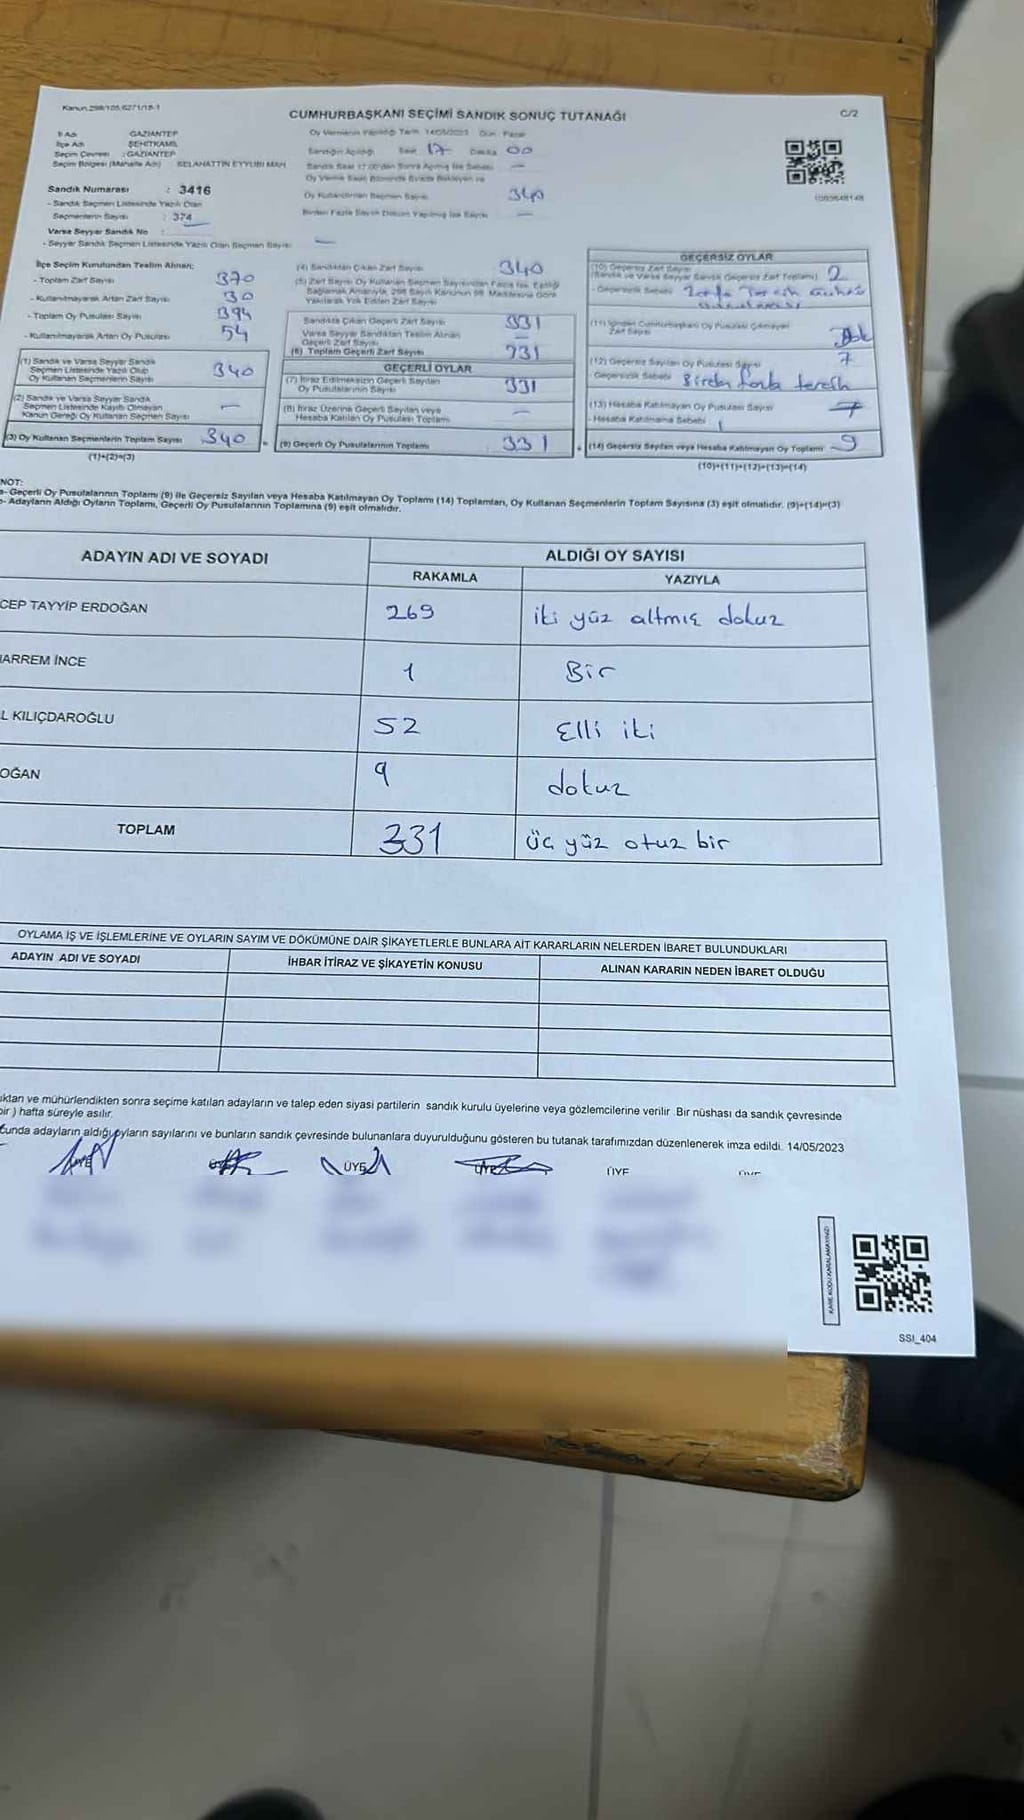 Kanun:298/105,6271/18-1
CUMHURBAŞKANI SEÇİMİ SANDIK SONUÇ TUTANAĞI
C/2
İl Adı GAZİANTEP
İlçe Adı ŞEHİTKAMİL
Seçim Çevresi : GAZİANTEP
Seçim Bölgesi (Mahalle Adı) SELAHATTİN EYYUBİ MAH
Oy Vermenin Yapıldığı Tarih 14/05/2023 Gün: Pazar
Sandığın Açıldığı Saat 17 Dakika 00
Oy Kullandırılan Seçmen Sayısı 340
Birden Fazla Sayım Döküm Yapılmış İse Sayısı —
Sandık Numarası : 3416
- Sandık Seçmen Listesinde Yazılı Olan
Seçmenlerin Sayısı : 374
Varsa Seyyar Sandık No :
- Seyyar Sandık Seçmen Listesinde Yazılı Olan Seçmen Sayısı: —
İlçe Seçim Kurulundan Teslim Alınan;
- Toplam Zarf Sayısı 370
- Kullanılmayarak Artan Zarf Sayısı 30
- Toplam Oy Pusulası Sayısı 394
- Kullanılmayarak Artan Oy Pusulası 54
(1) Sandık ve Varsa Seyyar Sandık
Seçmen Listesinde Yazılı Olup
Oy Kullanan Seçmenlerin Sayısı 340
(2) Sandık ve Varsa Seyyar Sandık
Seçmen Listesinde Kayıtlı Olmayan
Kanun Gereği Oy Kullanan Seçmen Sayısı —
(3) Oy Kullanan Seçmenlerin Toplam Sayısı 340
(1)+(2)=(3)
(4) Sandıktan Çıkan Zarf Sayısı 340
(5) Zarf Sayısı Oy Kullanan Seçmen Sayısından Fazla İse, Eşitliği
Sağlamak Amacıyla, 298 Sayılı Kanunun 98. Maddesine Göre
Yakılarak Yok Edilen Zarf Sayısı
Sandıkta Çıkan Geçerli Zarf Sayısı 331
Varsa Seyyar Sandıktan Teslim Alınan
Geçerli Zarf Sayısı —
(6) Toplam Geçerli Zarf Sayısı 331
GEÇERLİ OYLAR
(7) İtiraz Edilmeksizin Geçerli Sayılan
Oy Pusulalarının Sayısı 331
(8) İtiraz Üzerine Geçerli Sayılan veya
Hesaba Katılan Oy Pusulası Toplamı —
(9) Geçerli Oy Pusulalarının Toplamı 331
GEÇERSİZ OYLAR
(10) Geçersiz Zarf Sayısı
(Sandık ve Varsa Seyyar Sandık Geçersiz Zarf Toplamı) 2
- Geçersizlik Sebebi
(11) İçinden Cumhurbaşkanı Oy Pusulası Çıkmayan
Zarf Sayısı
(12) Geçersiz Sayılan Oy Pusulası Sayısı 7
- Geçersizlik Sebebi Birden fazla tercih
(13) Hesaba Katılmayan Oy Pusulası Sayısı
- Hesaba Katılmama Sebebi
(14) Geçersiz Sayılan veya Hesaba Katılmayan Oy Toplamı 9
(10)+(11)+(12)+(13)=(14)
NOT:
a- Geçerli Oy Pusulalarının Toplamı (9) ile Geçersiz Sayılan veya Hesaba Katılmayan Oy Toplamı (14) Toplamları, Oy Kullanan Seçmenlerin Toplam Sayısına (3) eşit olmalıdır. (9)+(14)=(3)
b- Adayların Aldığı Oyların Toplamı, Geçerli Oy Pusulalarının Toplamına (9) eşit olmalıdır.
ADAYIN ADI VE SOYADI ALDIĞI OY SAYISI
RAKAMLA YAZIYLA
CEP TAYYİP ERDOĞAN 269 iki yüz altmış dokuz
ARREM İNCE 1 Bir
L KILIÇDAROĞLU 52 Elli iki
OĞAN 9 dokuz
TOPLAM 331 üç yüz otuz bir
OYLAMA İŞ VE İŞLEMLERİNE VE OYLARIN SAYIM VE DÖKÜMÜNE DAİR ŞİKAYETLERLE BUNLARA AİT KARARLARIN NELERDEN İBARET BULUNDUKLARI
ADAYIN ADI VE SOYADI İHBAR İTİRAZ VE ŞİKAYETİN KONUSU ALINAN KARARIN NEDEN İBARET OLDUĞU
ktan ve mühürlendikten sonra seçime katılan adayların ve talep eden siyasi partilerin sandık kurulu üyelerine veya gözlemcilerine verilir .Bir nüshası da sandık çevresinde
bir ) hafta süreyle asılır.
unda adayların aldığı oyların sayılarını ve bunların sandık çevresinde bulunanlara duyurulduğunu gösteren bu tutanak tarafımızdan düzenlenerek imza edildi. 14/05/2023
ÜYE ÜYE ÜYE
KARE KODU KARALAMAYINIZ!
SSI_404